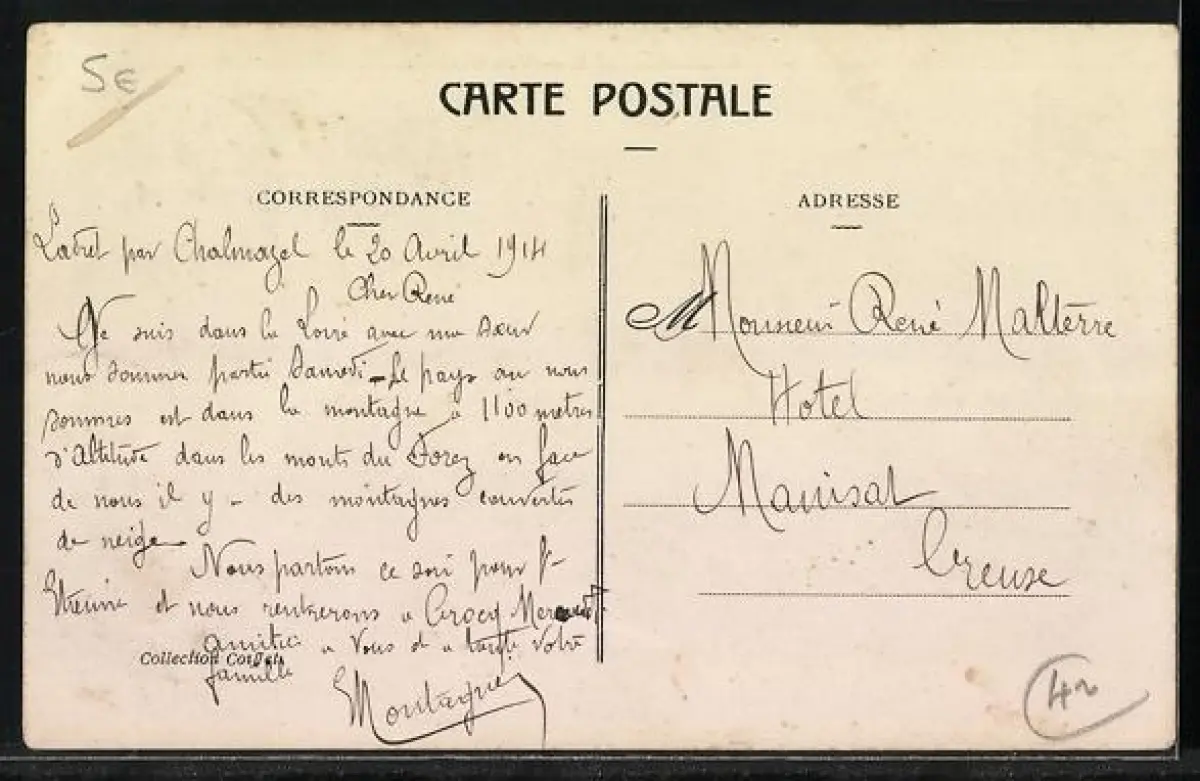 5€
CARTE POSTALE
CORRESPONDANCE
ADRESSE
par Chalmazel le 20 Avril 1914
Cher René
Je suis dans la Loire avec ma Sœur
nous sommes partis Samedi - Le pays ou nous
sommes est dans la montagne a 1100 metres
d'Altitude dans les monts du Forez en face
de nous il y a des montagnes couvertes
de neige
Nous partons ce soir pour St
Etienne et nous rentrerons a Crocq Mercredi
amitiés a Vous et a toute votre
famille
Collection
Montagne
M Monsieur René Malterre
Hotel
Mainsat
Creuse
42